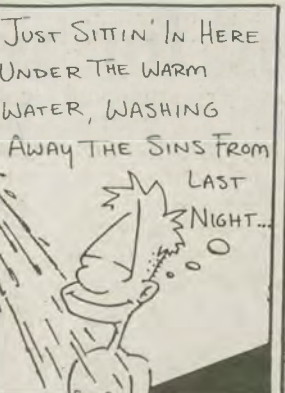 JUST SITTIN' IN HERE
UNDER THE WARM
WATER, WASHING
AWAY THE SINS FROM
LAST
NIGHT...